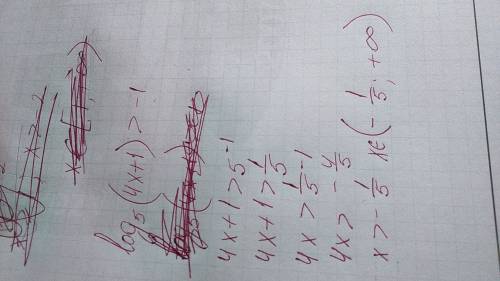 log₅(4x+1) > -1
4x+1 > 5⁻¹
4x+1 > 1/5
4x > 1/5 - 1
4x > - 4/5
x > - 1/5 x∈(- 1/5; +∞)